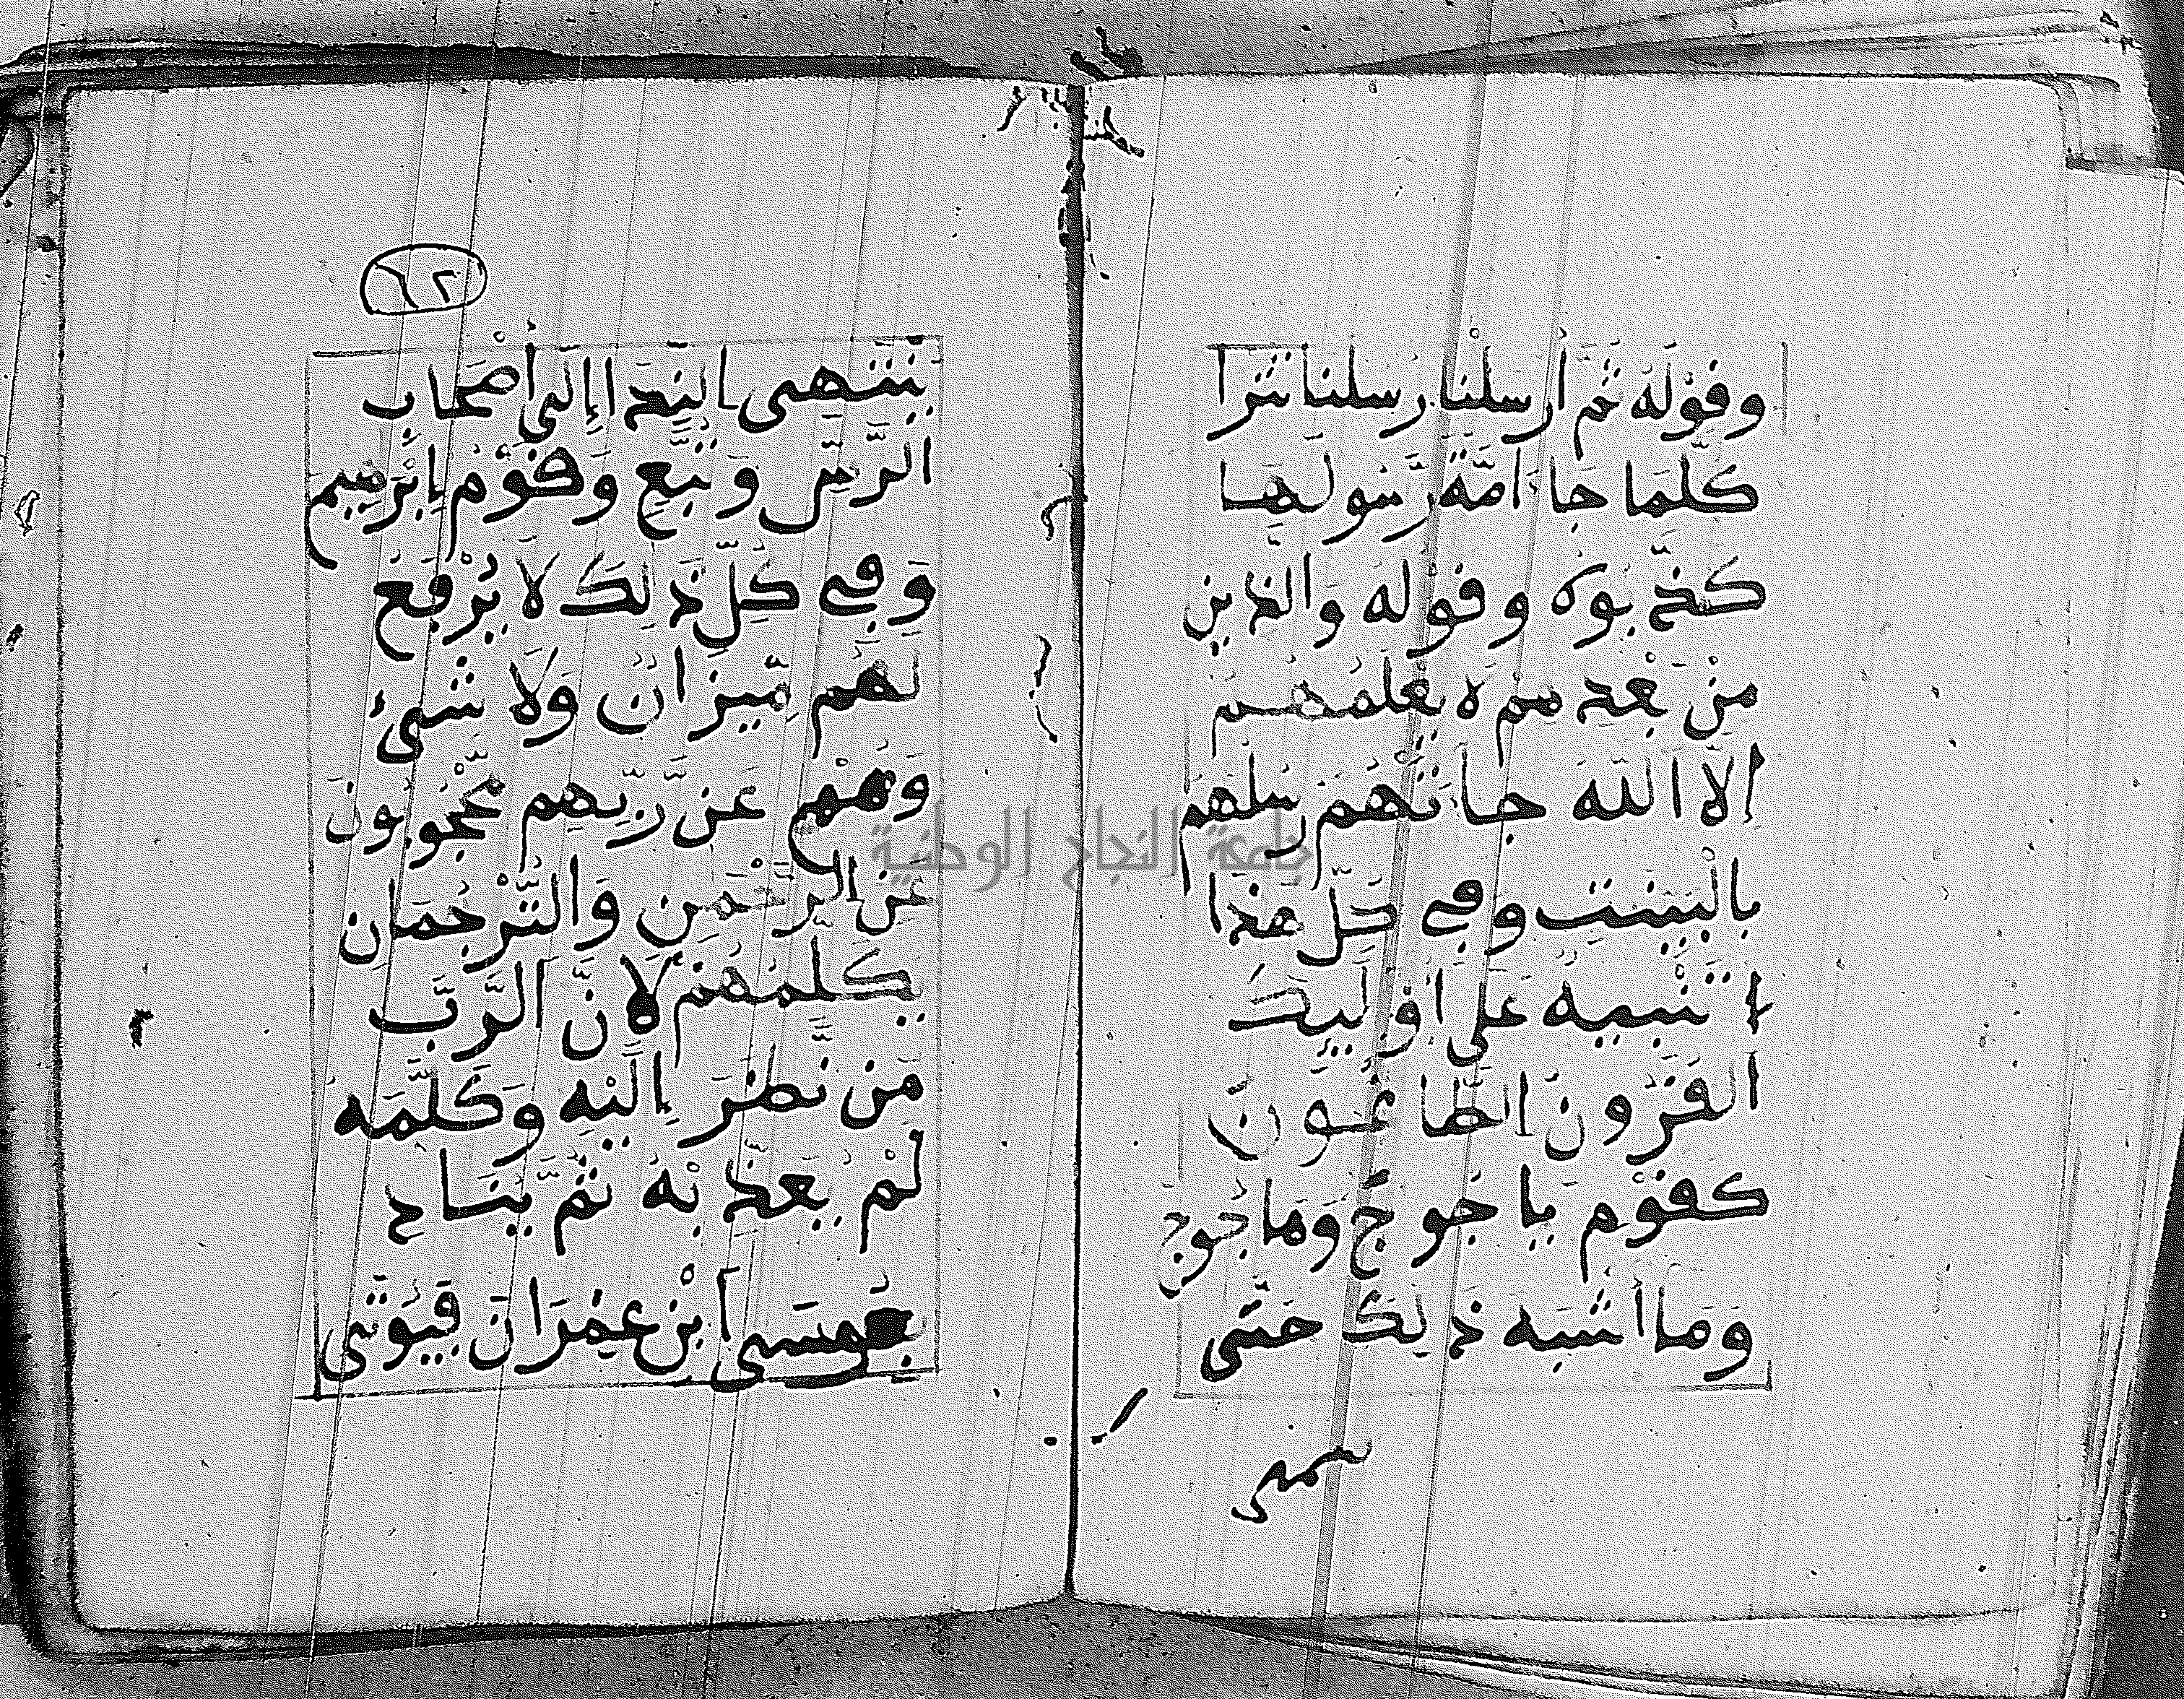 وقوله ثم أرسلنا رسلنا تترا
كلما جاء امة رسولها
كذبوه وقوله والذين
من بعدهم لا يعلمهم
الا الله جاءتهم رسلهم
بالبينت وفي كل هذا
تنبيه على اوليك
القرون الطاغون
كقوم ياجوج وماجوج
وما أشبه ذلك حتى
٦٢
ينتهي النداا إلى أصحاب
الرس وتبع وقوم إبرهيم
وفي كل ذلك لا يرفع
لهم ميزان ولا شيء
وهم عن ربهم محجوبون
عن الرحمن والترجمان
يكلمهم لان الرب
من نظر إليه وكلمه
لم يعذبه ثم يناد
بموسى ابن عمران فيوتى
جامعة النجاح الوطنية